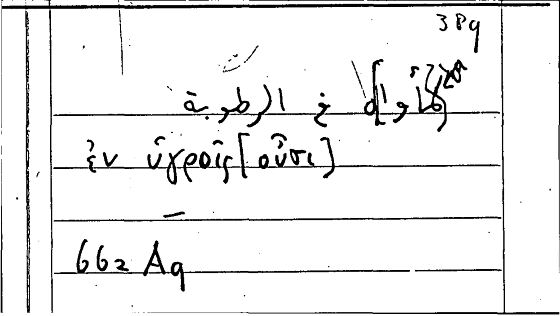 389
في الرطوبة
ἐν ὑγροῖς [οὖσι]
662 Aq